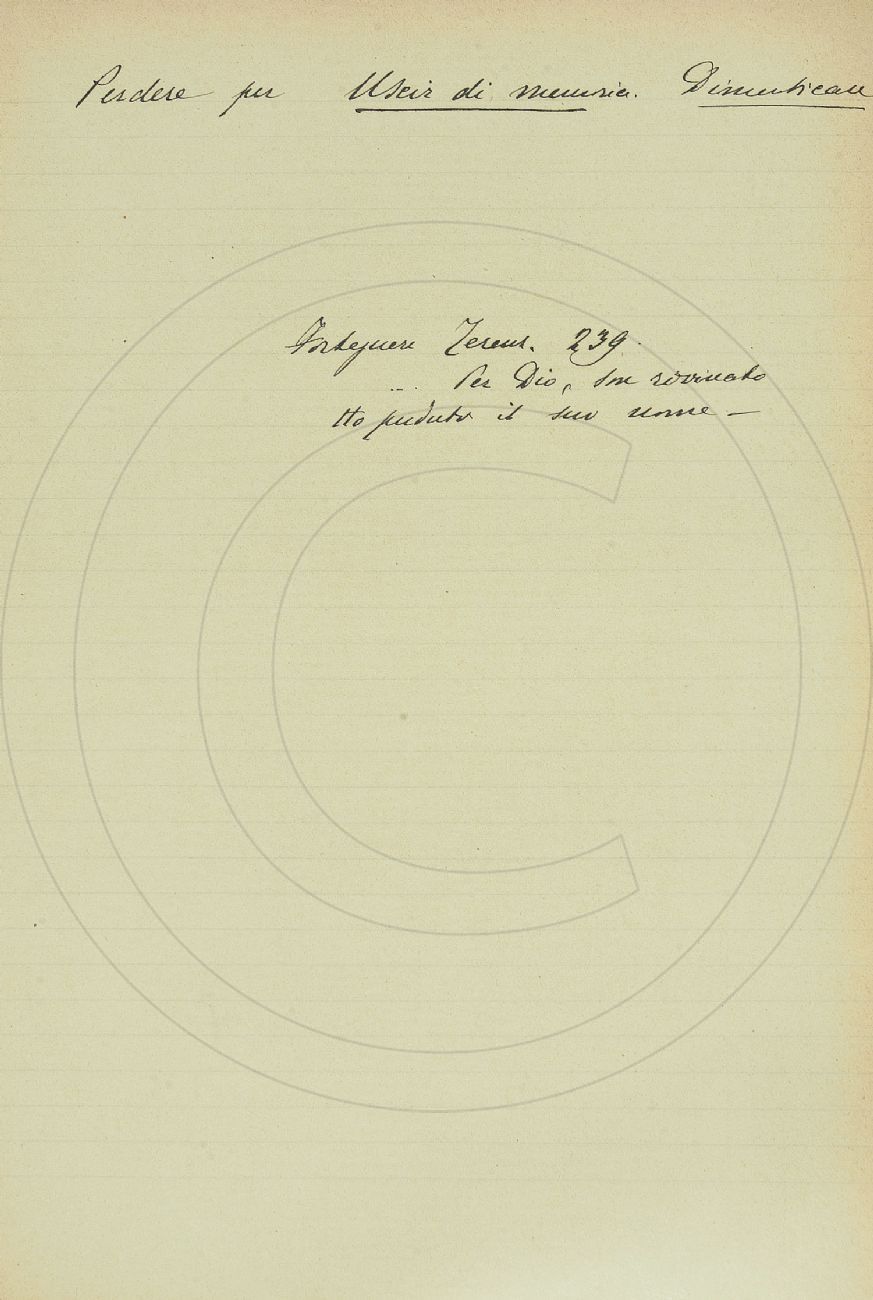 Perdere per Uscir di memoria. Dimenticare
Forteguerri Terenz. 239.
... Per Dio, son rovinato
Ho perduto il suo nome —